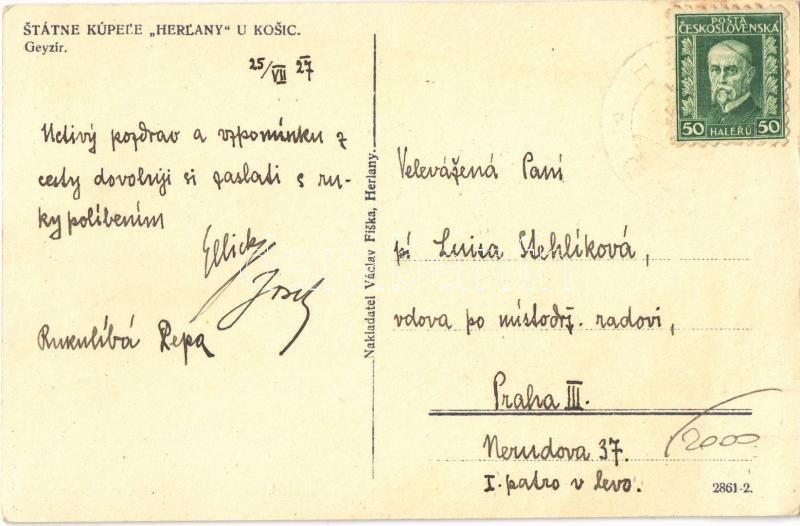 ŠTÁTNE KÚPEĽE „HERĽANY“ U KOŠIC.
Geyzír.
25/VII 27
Uctivý pozdrav a vzpomínku z
cesty dovoluji si zaslati s ru-
ky políbením
Josef
Rukulíbá Pepa
Nakladatel Václav Fiška, Herlany.
POŠTA
ČESKOSLOVENSKÁ
50 HALÉŘŮ 50
Velevážená Paní
pí Luisa Stehlíková,
vdova po místodrž. radovi,
Praha III.
Nerudova 37.
I. patro v levo.
2000
2861-2.